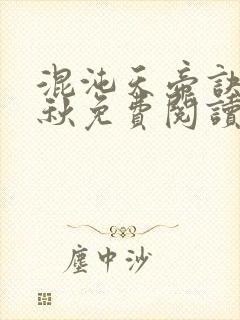 混沌天帝訣
秋免費閱讀
塵中沙